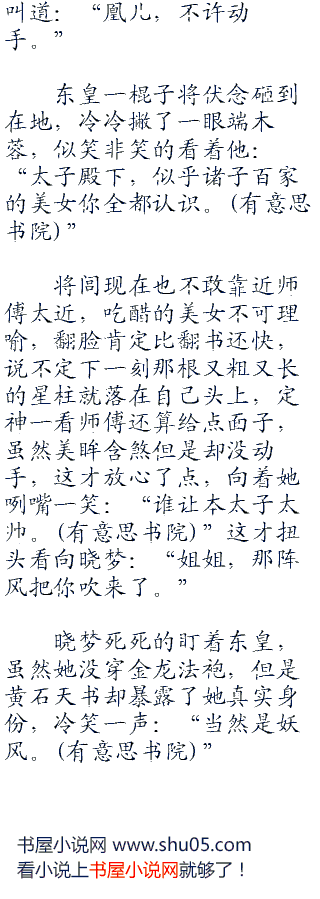 叫道：“凰儿，不许动
手。”
东皇一棍子将伏念砸到
在地，冷冷撇了一眼端木
蓉，似笑非笑的看着他：
“太子殿下，似乎诸子百家
的美女你全都认识。(有意思
书院)”
将闾现在也不敢靠近师
傅太近，吃醋的美女不可理
喻，翻脸肯定比翻书还快，
说不定下一刻那根又粗又长
的星柱就落在自己头上，定
神一看师傅还算给点面子，
虽然美眸含煞但是却没动
手，这才放心了点，向着她
咧嘴一笑：“谁让本太子太
帅。(有意思书院)”这才扭
头看向晓梦：“姐姐，那阵
风把你吹来了。”
晓梦死死的盯着东皇，
虽然她没穿金龙法袍，但是
黄石天书却暴露了她真实身
份，冷笑一声：“当然是妖
风。(有意思书院)”
书屋小说网 www.shu05.com
看小说上书屋小说网就够了！